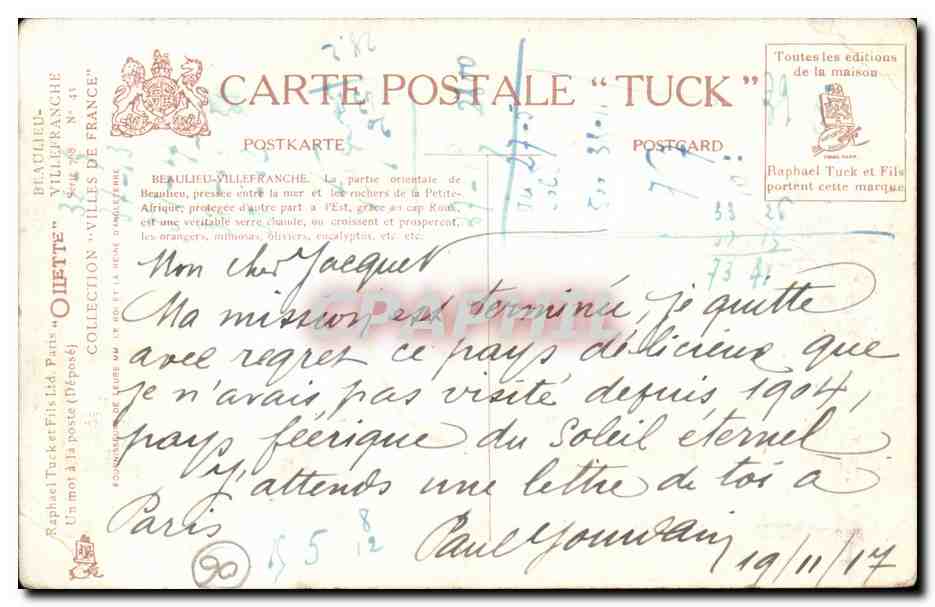 CARTE POSTALE "TUCK"
POSTKARTE
POSTCARD
Toutes les éditions
de la maison
Raphael Tuck et Fils
portent cette marque
BEAULIEU-VILLEFRANCHE. La partie orientale de
Beaulieu, pressée entre la mer et les rochers de la Petite-
Afrique, protégée d'autre part à l'Est, grâce au cap Roux,
est une véritable serre chaude, où croissent et prospèrent,
les orangers, mimosas, oliviers, eucalyptus, etc. etc.
BEAULIEU-
VILLEFRANCHE
Série 268 N° 43
Raphael Tuck et Fils Ltd. Paris "OILETTE"
Un mot à la poste (Déposé)
COLLECTION "VILLES DE FRANCE"
FOURNISSEURS DE LEURS MM. LE ROI ET LA REINE D'ANGLETERRE
Mon cher Jacquet
Ma mission est terminée, je quitte
avec regret ce pays délicieux que
je n'avais pas visité depuis 1904,
pays féerique du Soleil éternel
J'attends une lettre de toi à
Paris
Paul Jourdain
19/11/17
90
5
8
12
33 26
73
CPAPHIL